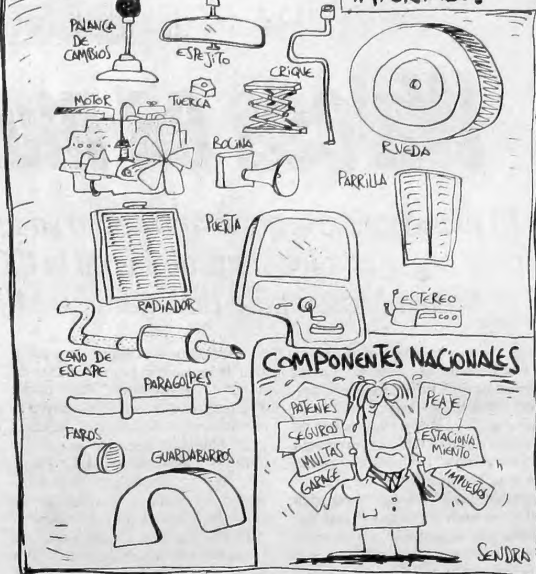 PALANCA
DE
CAMBIOS
ESPEJITO
CRIQUE
MOTOR
TUERCA
BOCINA
RUEDA
PARRILLA
RADIADOR
PUERTA
ESTÉREO
CAÑO DE
ESCAPE
PARAGOLPES
FAROS
GUARDABARROS
COMPONENTES NACIONALES
PATENTES
SEGUROS
MULTAS
GARAGE
PEAJE
ESTACIONA
MIENTO
IMPUESTOS
SENDRA